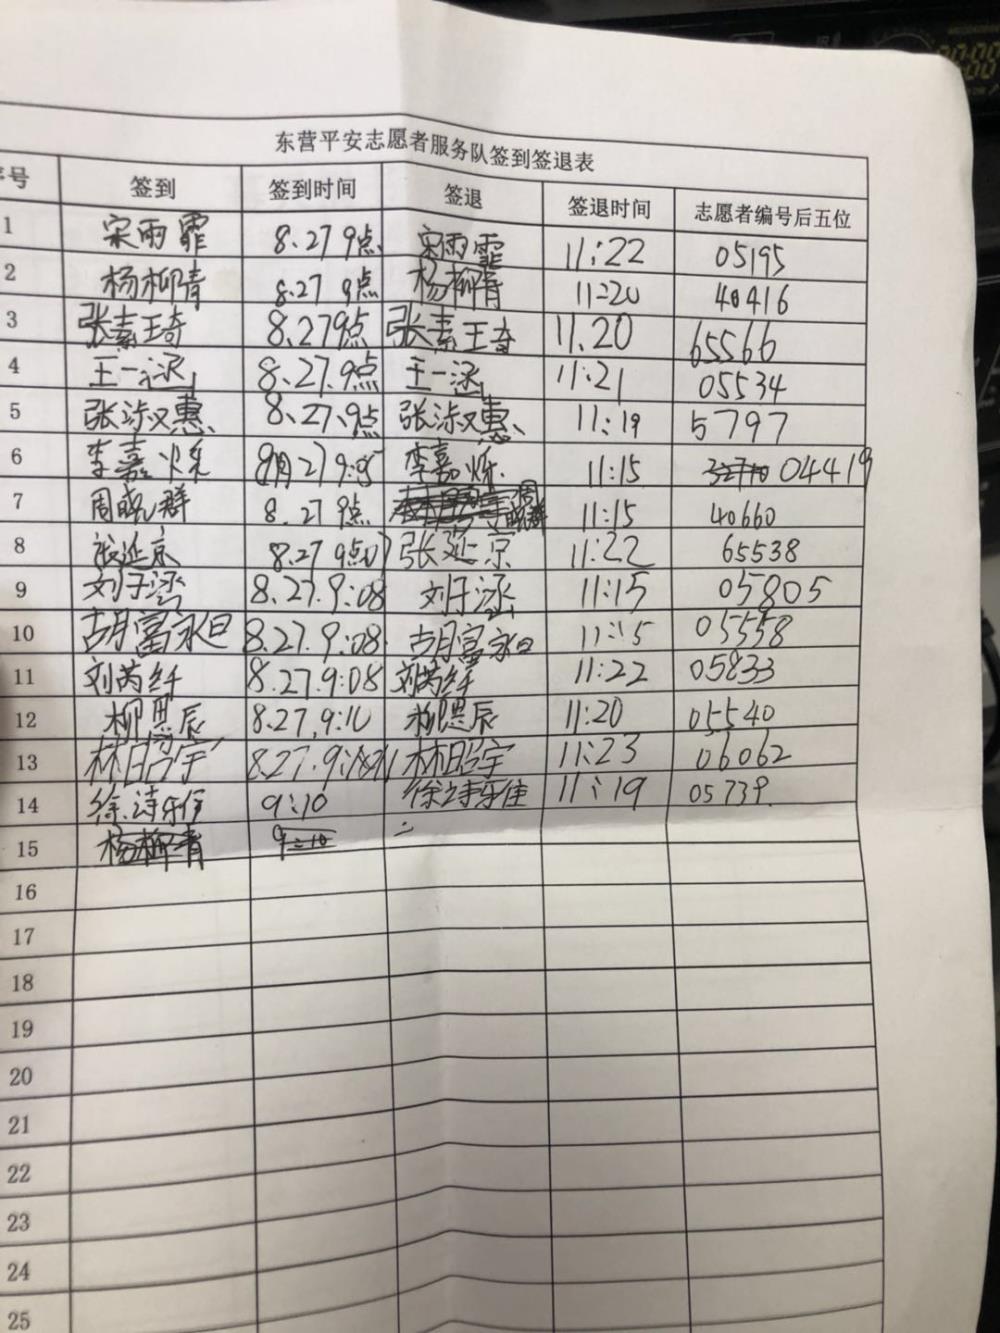 东营平安志愿者服务队签到签退表
序号 签到 签到时间 签退 签退时间 志愿者编号后五位
1 宋雨霏 8.27 9点 宋雨霏 11:22 05195
2 杨柳青 8.27 9点 杨柳青 11:20 40416
3 张素琦 8.27 9点 张素琦 11.20 65566
4 王一涵 8.27.9点 王一涵 11:21 05534
5 张淑惠 8.27.9点 张淑惠 11:19 5797
6 李嘉烁 8月27 9:05 李嘉烁 11:15 04419
7 周晓群 8.27 9点 周晓群 11:15 40660
8 张延京 8.27 9点 张延京 11:22 65538
9 刘子涵 8.27.9:08 刘子涵 11:15 05805
10 胡富永 8.27.9:08 胡富永 11:15 05558
11 刘芮纤 8.27.9:08 刘芮纤 11:22 05833
12 柳思辰 8.27.9:10 柳思辰 11:20 05540
13 林昭宇 8.27.9: 林昭宇 11:23 06062
14 徐诗乐佳 9:10 徐诗乐佳 11:19 05739
15 杨柳青 9:10
16
17
18
19
20
21
22
23
24
25